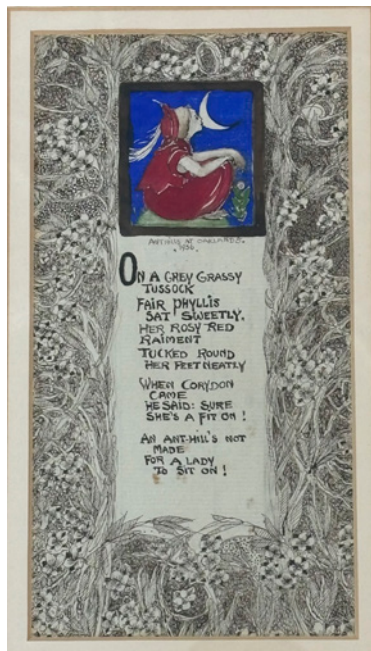 1936.
ON A GREY GRASSY
TUSSOCK
FAIR PHYLLIS
SAT SWEETLY,
HER ROSY RED
RAIMENT
TUCKED ROUND
HER FEET NEATLY
WHEN CORYDON
CAME
HE SAID: SURE
SHE'S A FIT ON!
AN ANT-HILL'S NOT
MADE
FOR A LADY
TO SIT ON!